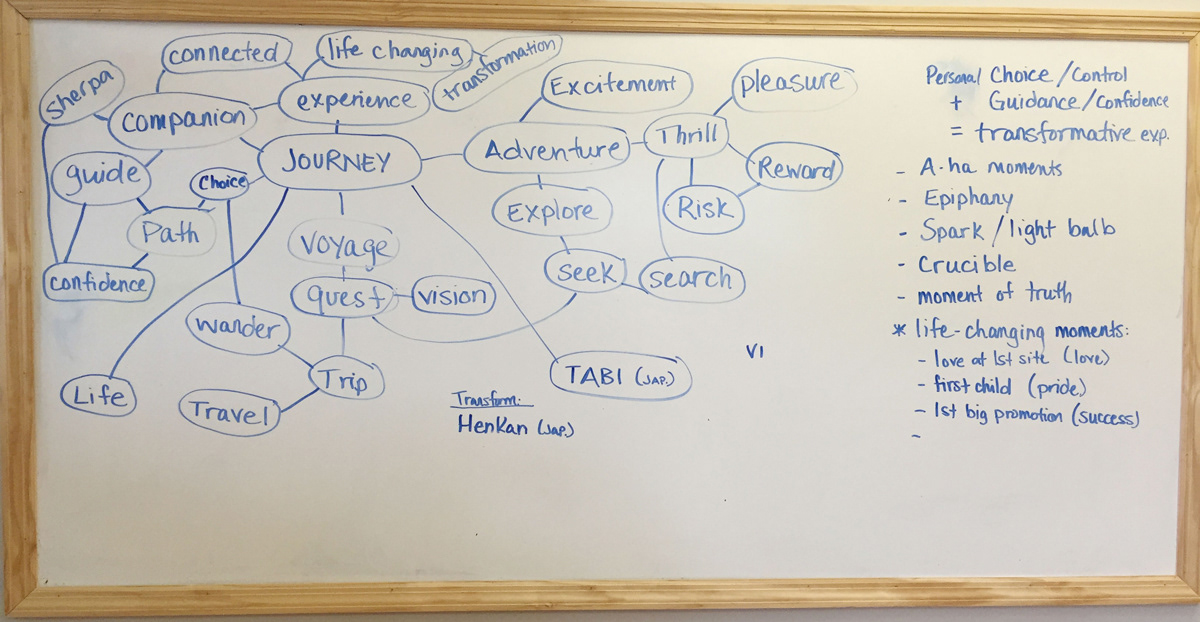 connected
life changing
transformation
sherpa
companion
experience
Excitement
pleasure
guide
Choice
JOURNEY
Adventure
Thrill
Reward
Path
Explore
Risk
confidence
Voyage
seek
search
quest
vision
wander
Life
Trip
Travel
TABI (JAP.)
Transform:
Henkan (JAP.)
VI
Personal Choice/Control
+ Guidance/Confidence
= transformative exp.
- A-ha moments
- Epiphany
- Spark/light bulb
- Crucible
- moment of truth
* life-changing moments:
- love at 1st site (love)
- first child (pride)
- 1st big promotion (success)
-